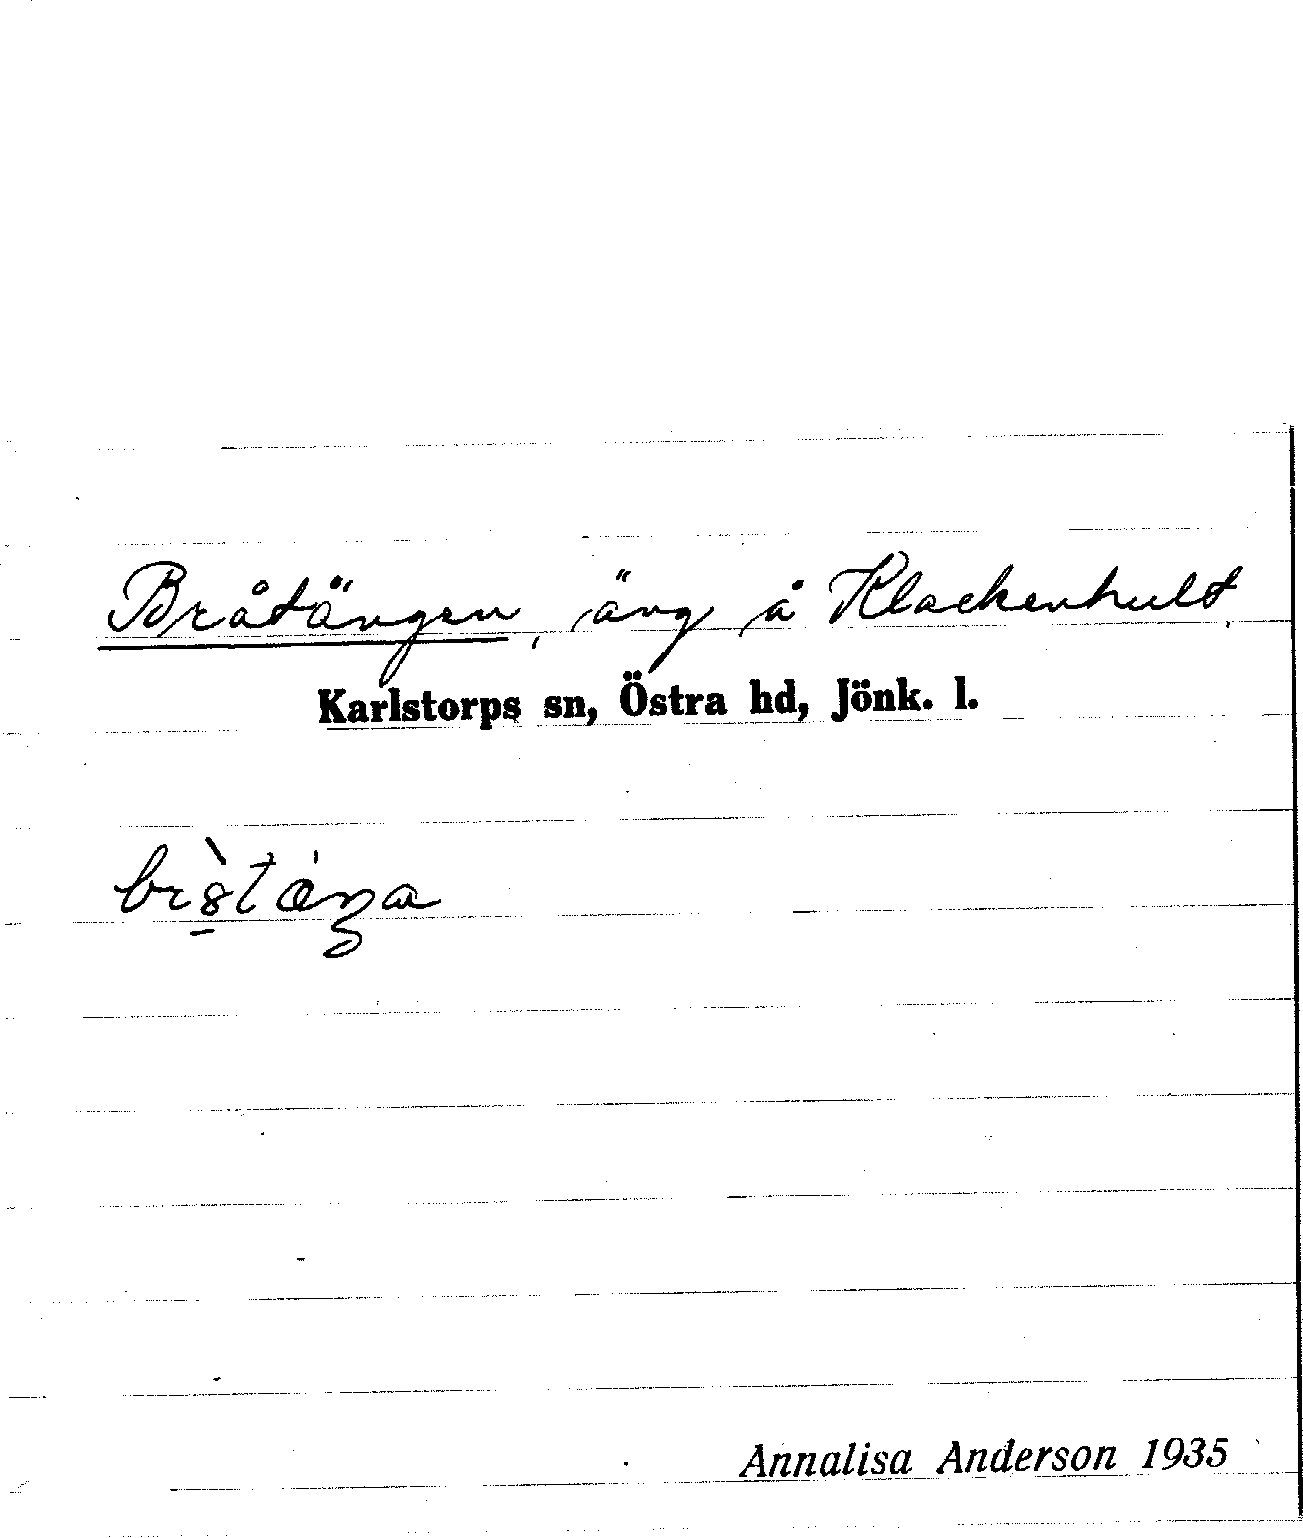 Bråtängen, äng å Klackenhult,
Karlstorps sn, Östra hd, Jönk. l.
Annalisa Anderson 1935